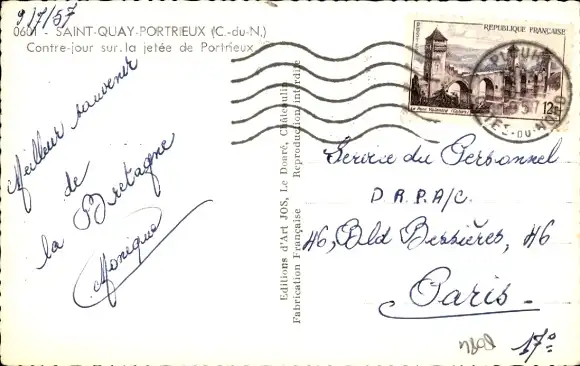 9/7/57
0601 - SAINT-QUAY-PORTRIEUX (C.-du-N.)
Contre-jour sur la jetée de Portrieux
Meilleur souvenir
de
la Bretagne
Monique
Editions d'Art JOS, Le Doaré, Châteaulin
Fabrication Française Reproduction interdite
REPUBLIQUE FRANÇAISE
12F
Service du Personnel
D.R.P.A/C.
46, Bld Bessières, 46
Paris.
17°